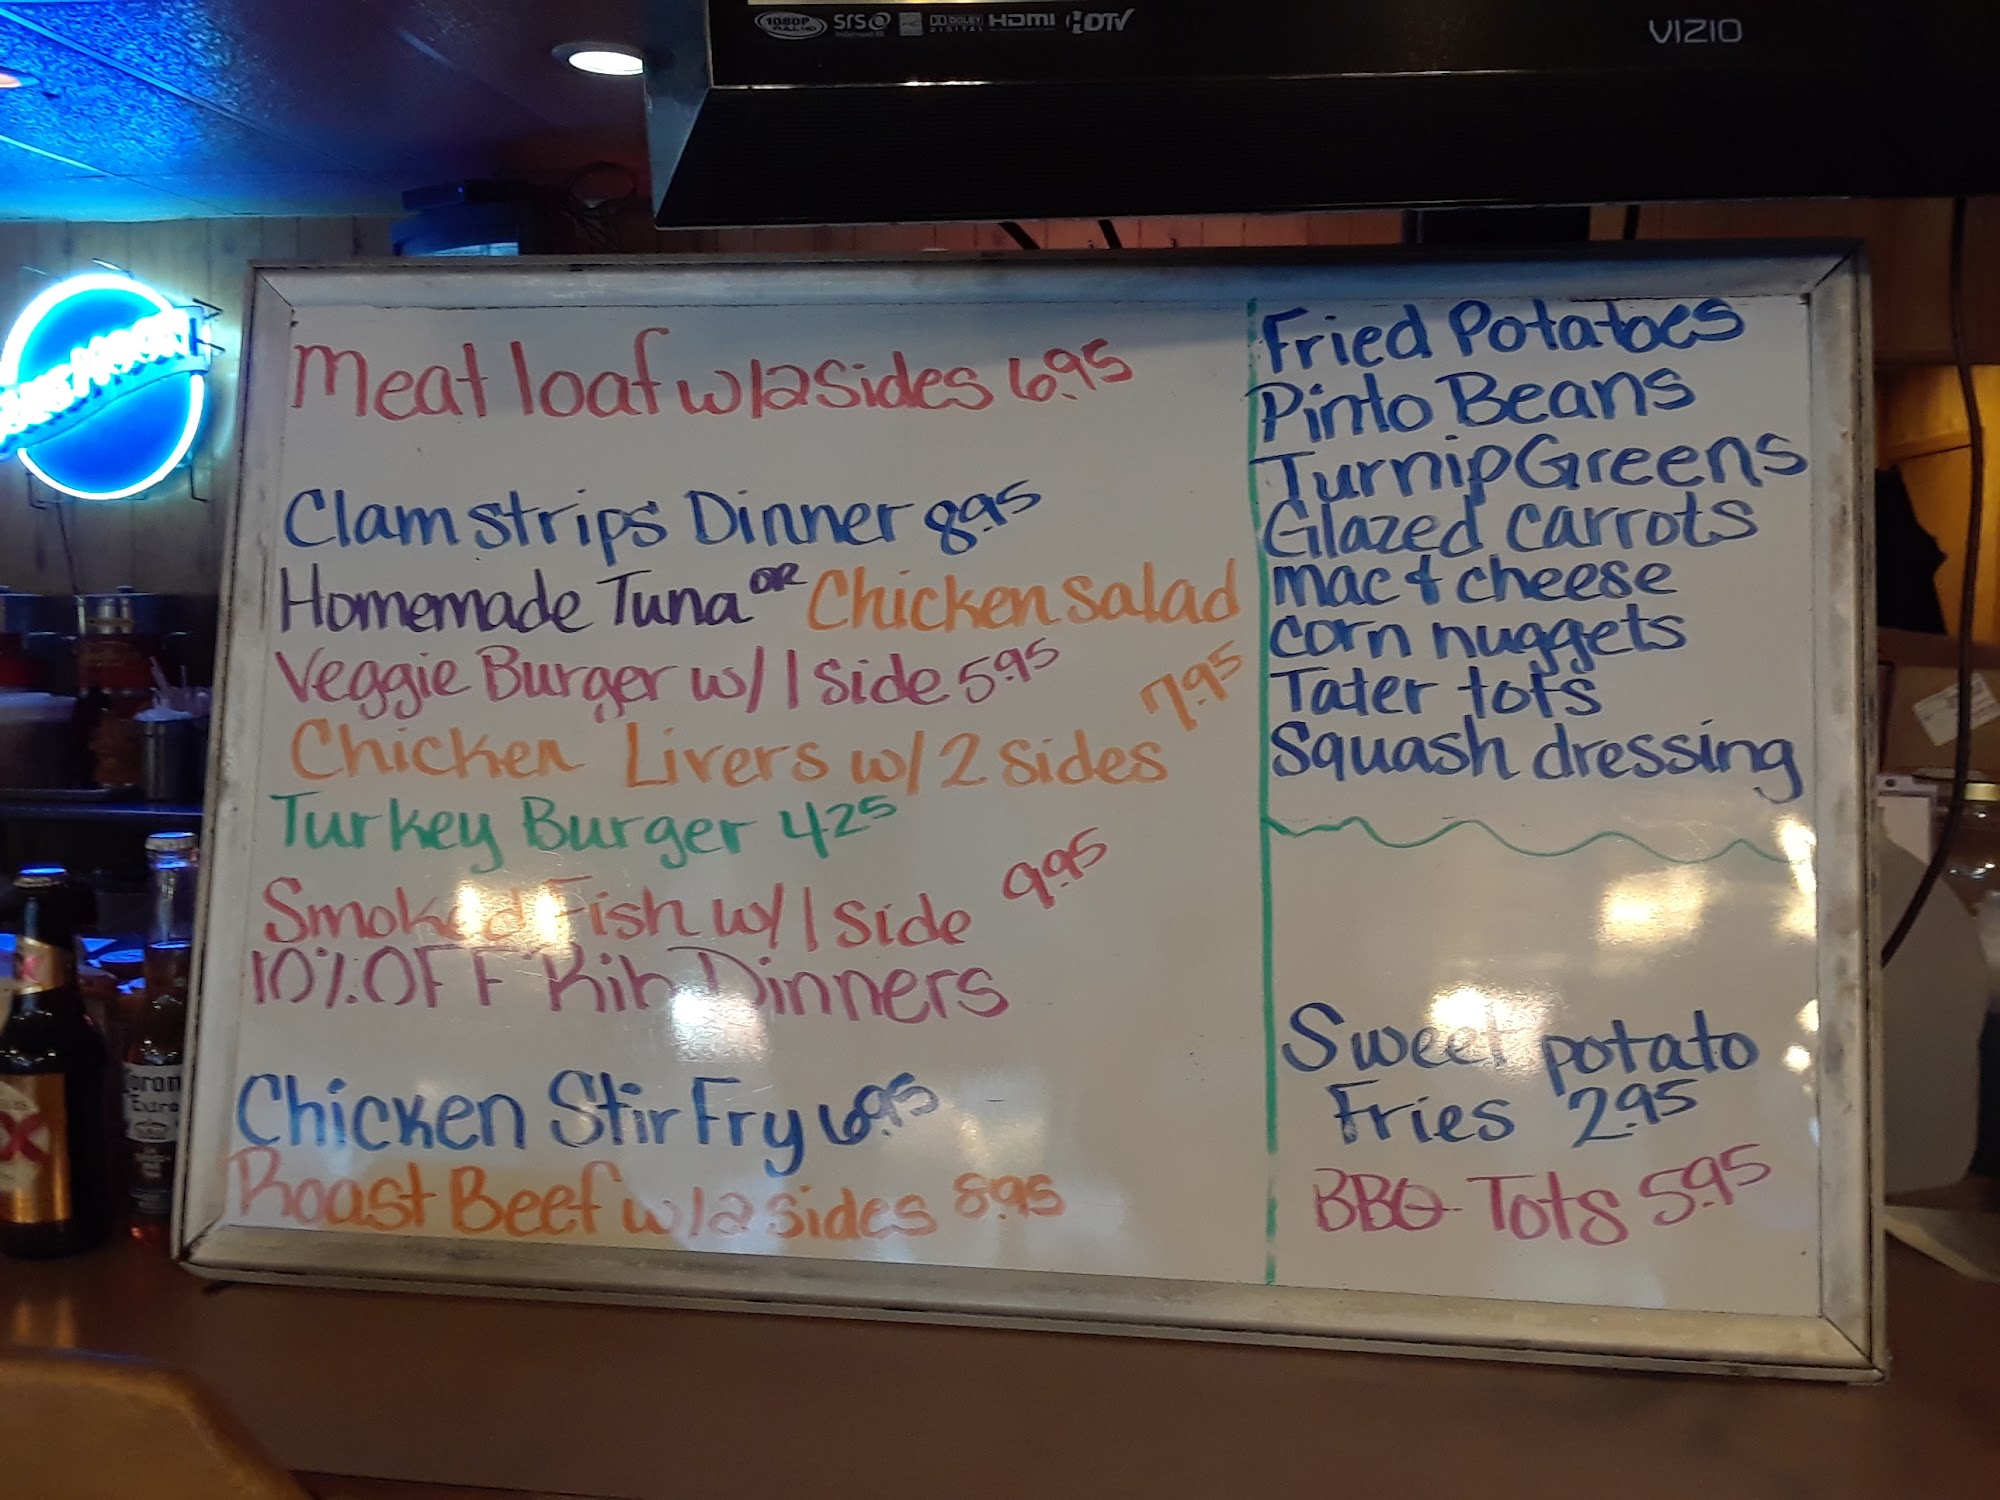 1080P
FULL HD
SRS
DOLBY
DIGITAL
HDMI
HDTV
VIZIO
Meat loaf w/2 Sides 6.95
Clam strips Dinner 8.95
Homemade Tuna OR Chicken Salad
Veggie Burger w/ 1 side 5.95
Chicken Livers w/ 2 sides 7.95
Turkey Burger 4.25
Smoked Fish w/ 1 side 9.95
10% OFF Rib Dinners
Chicken Stir Fry 6.95
Roast Beef w/2 sides 8.95
Fried Potatoes
Pinto Beans
Turnip Greens
Glazed carrots
mac & cheese
corn nuggets
Tater tots
Squash dressing
Sweet potato
Fries 2.95
BBQ Tots 5.95